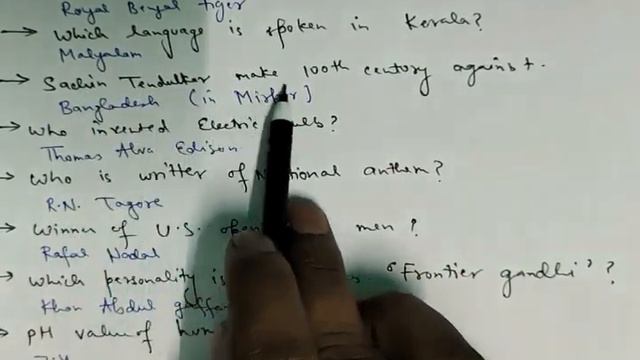 Royal Bengal tiger
→ Which language is spoken in Kerala?
Malyalam
→ Sachin Tendulker make 100th century against.
Bangladesh (in
→ Who invented Electric
Thomas Alva Edison
→ Who is writter of National anthem?
R.N. Tagore
→ Winner of U.S. open men?
Rafal Nadal
→ Which personality is "Frontier gandhi"?
Khan Abdul
→ pH value of